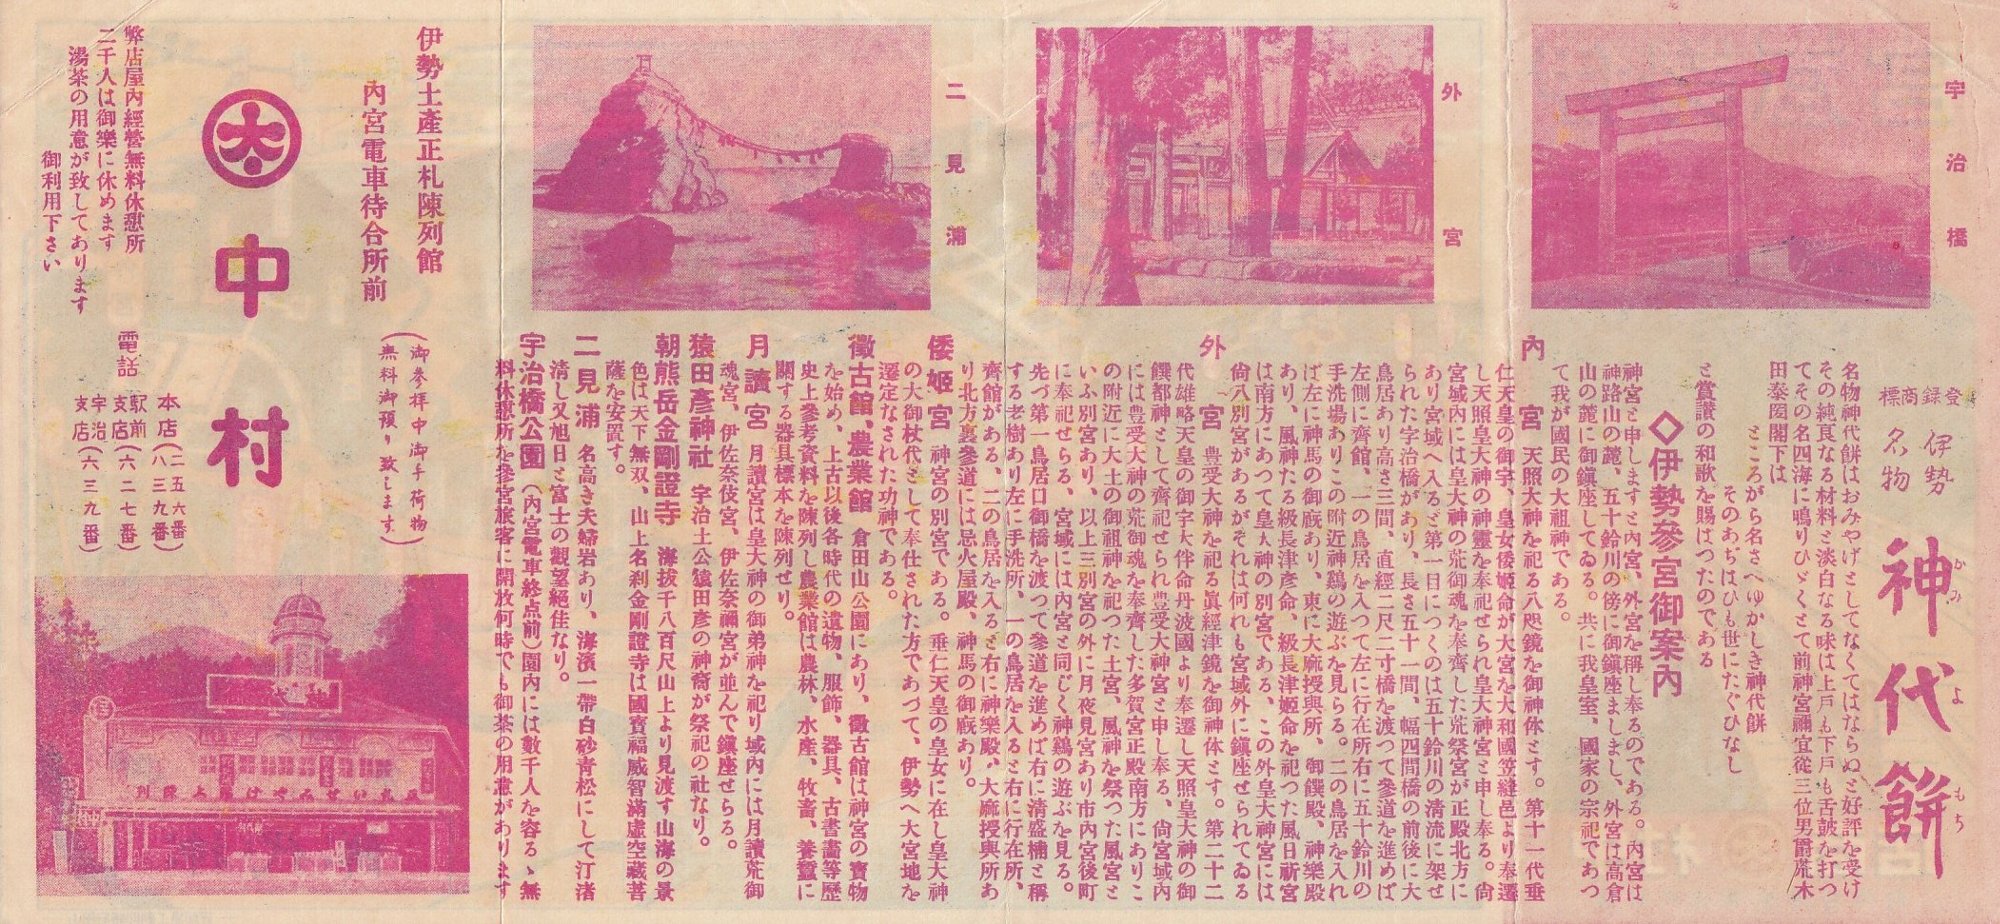 宇治橋
外宮
二見浦
登錄商標
伊勢
名物
神代餅
かみよもち
名物神代餅はおみやげとしてなくてはならぬと好評を受け
その純良なる材料と淡白なる味は上戸も下戸も舌皷を打つ
てその名四海に鳴りひゞくとて前神宮禰宜從三位男爵荒木
田泰圀閣下は
ところがら名さへゆかしき神代餅
そのあぢはひも世にたぐひなし
と賞讃の和歌を賜はつたのである
◇伊勢參宮御案內
神宮と申しますと內宮、外宮を稱し奉るのである。內宮は
神路山の麓、五十鈴川の傍に御鎭座ましまし、外宮は高倉
山の麓に御鎭座してゐる。共に我皇室、國家の宗祀であつ
て我が國民の大祖神である。
內宮 天照大神を祀る八咫鏡を御神体とす。第十一代垂
仁天皇の御宇、皇女倭姬命が大宮を大和國笠縫邑より奉遷
し天照皇大神の神靈を奉祀せられ皇大神宮と申し奉る。尙
宮域內には皇大神の荒御魂を奉齊した荒祭宮が正殿北方に
あり宮域へ入ると第一目につくのは五十鈴川の清流に架せ
られた宇治橋があり、長さ五十一間、幅四間橋の前後に大
鳥居あり高さ三間、直經二尺二寸橋を渡つて參道を進めば
左側に齊館、一の鳥居を入つて左に行在所右に五十鈴川の
手洗場ありこの附近神鷄の遊ぶを見らる。二の鳥居を入れ
ば左に神馬の御厩あり、東に大麻授與所、御饌殿、神樂殿
あり、風神たる級長津彥命、級長津姬命を祀つた風日祈宮
は南方にあつて皇大神の別宮である、この外皇大神宮には
尙八別宮があるがそれは何れも宮域外に鎭座せられてゐる
外宮 豊受大神を祀る眞經津鏡を御神体とす。第二十二
代雄略天皇の御宇大伴命丹波國より奉遷し天照皇大神の御
饌都神として齊祀せられ豊受大神宮と申し奉る、尙宮域內
には豊受大神の荒御魂を奉齊した多賀宮正殿南方にありこ
の附近に大土の御祖神を祀つた土宮、風神を祭つた風宮と
いふ別宮があり、以上三別宮の外に月夜見宮あり市內宮後町
に奉祀せらる、宮域には內宮と同じく神鷄の遊ぶを見る。
先づ第一鳥居口御橋を渡つて參道を進めば右に清盛楠と稱
する老樹あり左に手洗所、一の鳥居を入ると右に行在所、
齊館がある、二の鳥居を入ると右に神樂殿、大麻授與所あ
り北方裏參道には忌火屋殿、神馬の御厩あり。
倭姬宮 神宮の別宮である。垂仁天皇の皇女に在し皇大神
の大御杖代として奉仕された方であつて、伊勢へ大宮地を
選定なされた功神である。
徵古館、農業館 倉田山公園にあり、徵古館は神宮の寶物
を始め、上古以後各時代の遺物、服飾、器具、古書畵等歷
史上參考資料を陳列し農業館は農林、水產、牧畜、養蠶に
關する器具標本を陳列せり。
月讀宮 月讀宮は皇大神の御弟神を祀り域內には月讀荒御
魂宮、伊佐奈伎宮、伊佐奈禰宮が並んで鎭座せらる。
猿田彥神社 宇治土公猿田彥の神裔が祭祀の社なり。
朝熊岳金剛證寺 海拔千八百尺山上より見渡す山海の景
色は天下無双、山上名刹金剛證寺は國寶福威智滿虛空藏菩
薩を安置す。
二見浦 名高き夫婦岩あり、海濱一帶白砂青松にして汀渚
清し又旭日と富士の觀望絕佳なり。
宇治橋公園（內宮電車終点前）園內には數千人を容るゝ無
料休憩所を參宮旅客に開放何時でも御茶の用意があります
伊勢土產正札陳列館
內宮電車待合所前
（御參拜中御手荷物
無料御預り致します）
大
中村
弊店屋內經營無料休憩所
二千人は御樂に休めます
湯茶の用意が致してあります
御利用下さい
電話
本店（二五六番 八三九番）
驛前支店（六二七番）
宇治支店（六三九番）